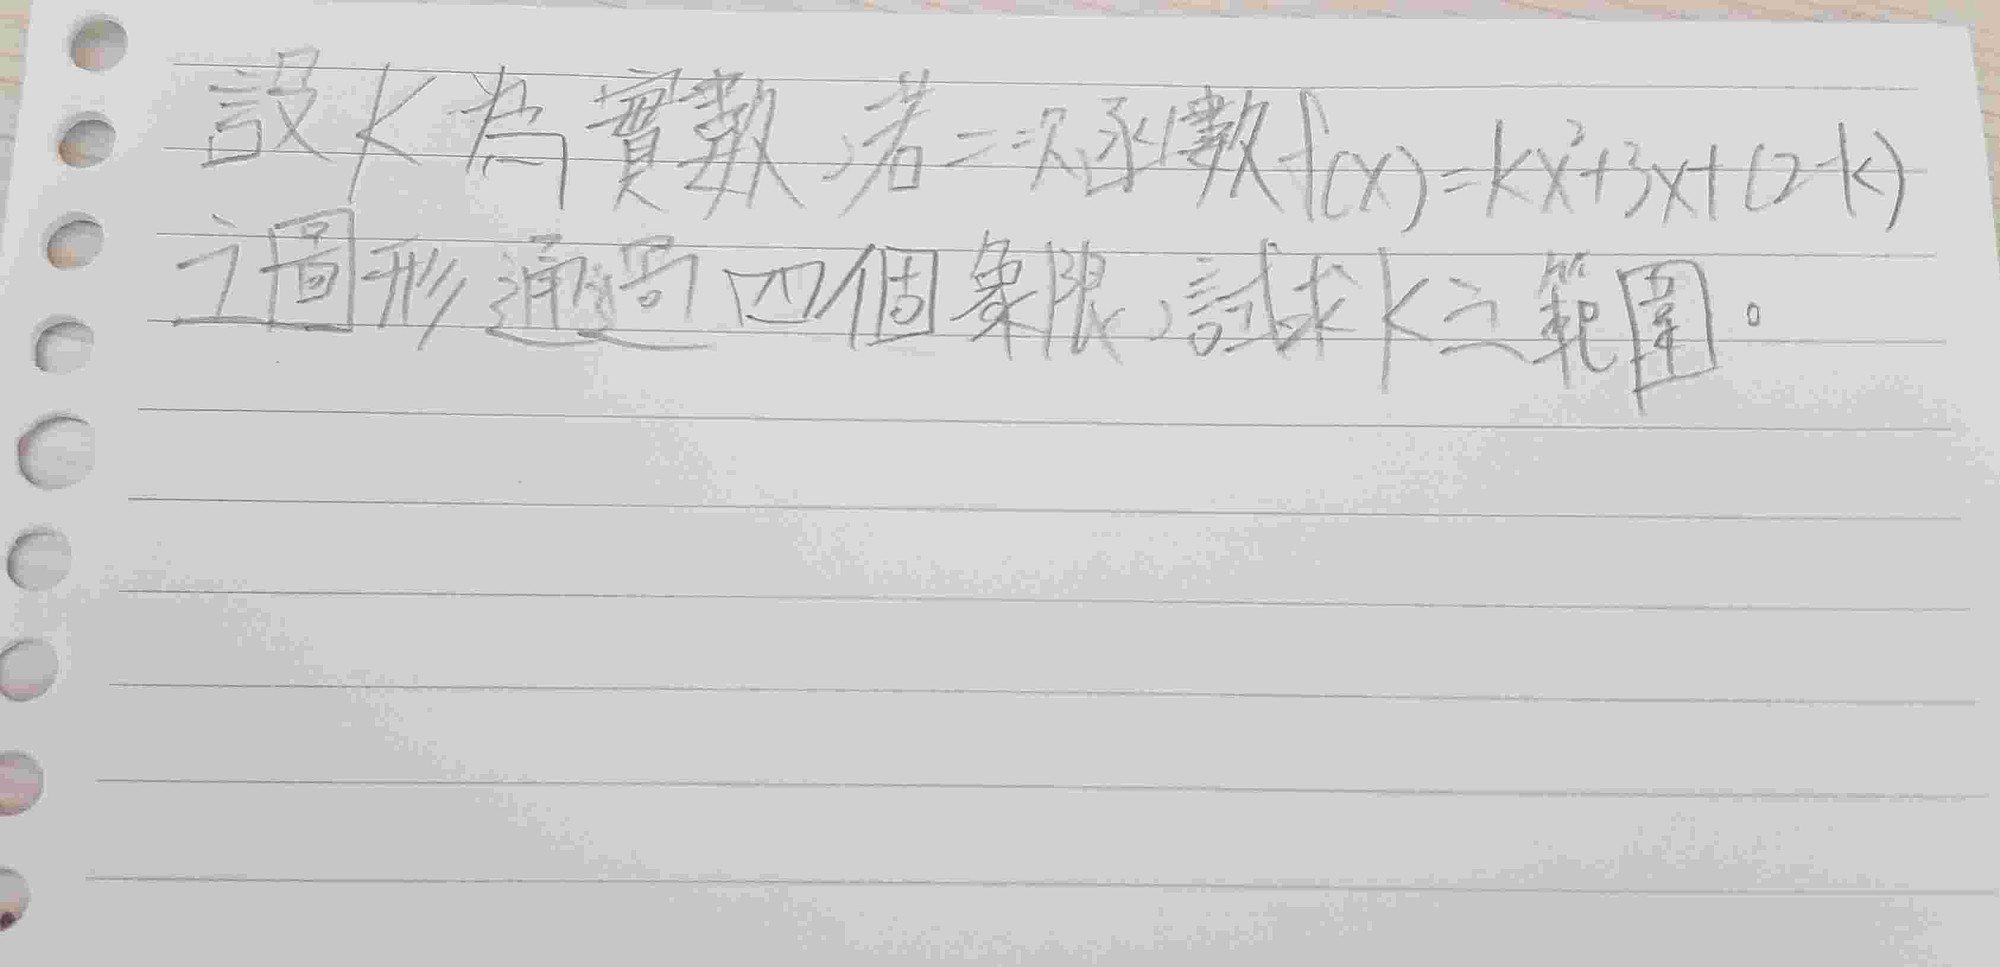 設k為實數,若二次函數f(x)=kx²+3x+(2-k)
之圖形通過四個象限,試求k之範圍。